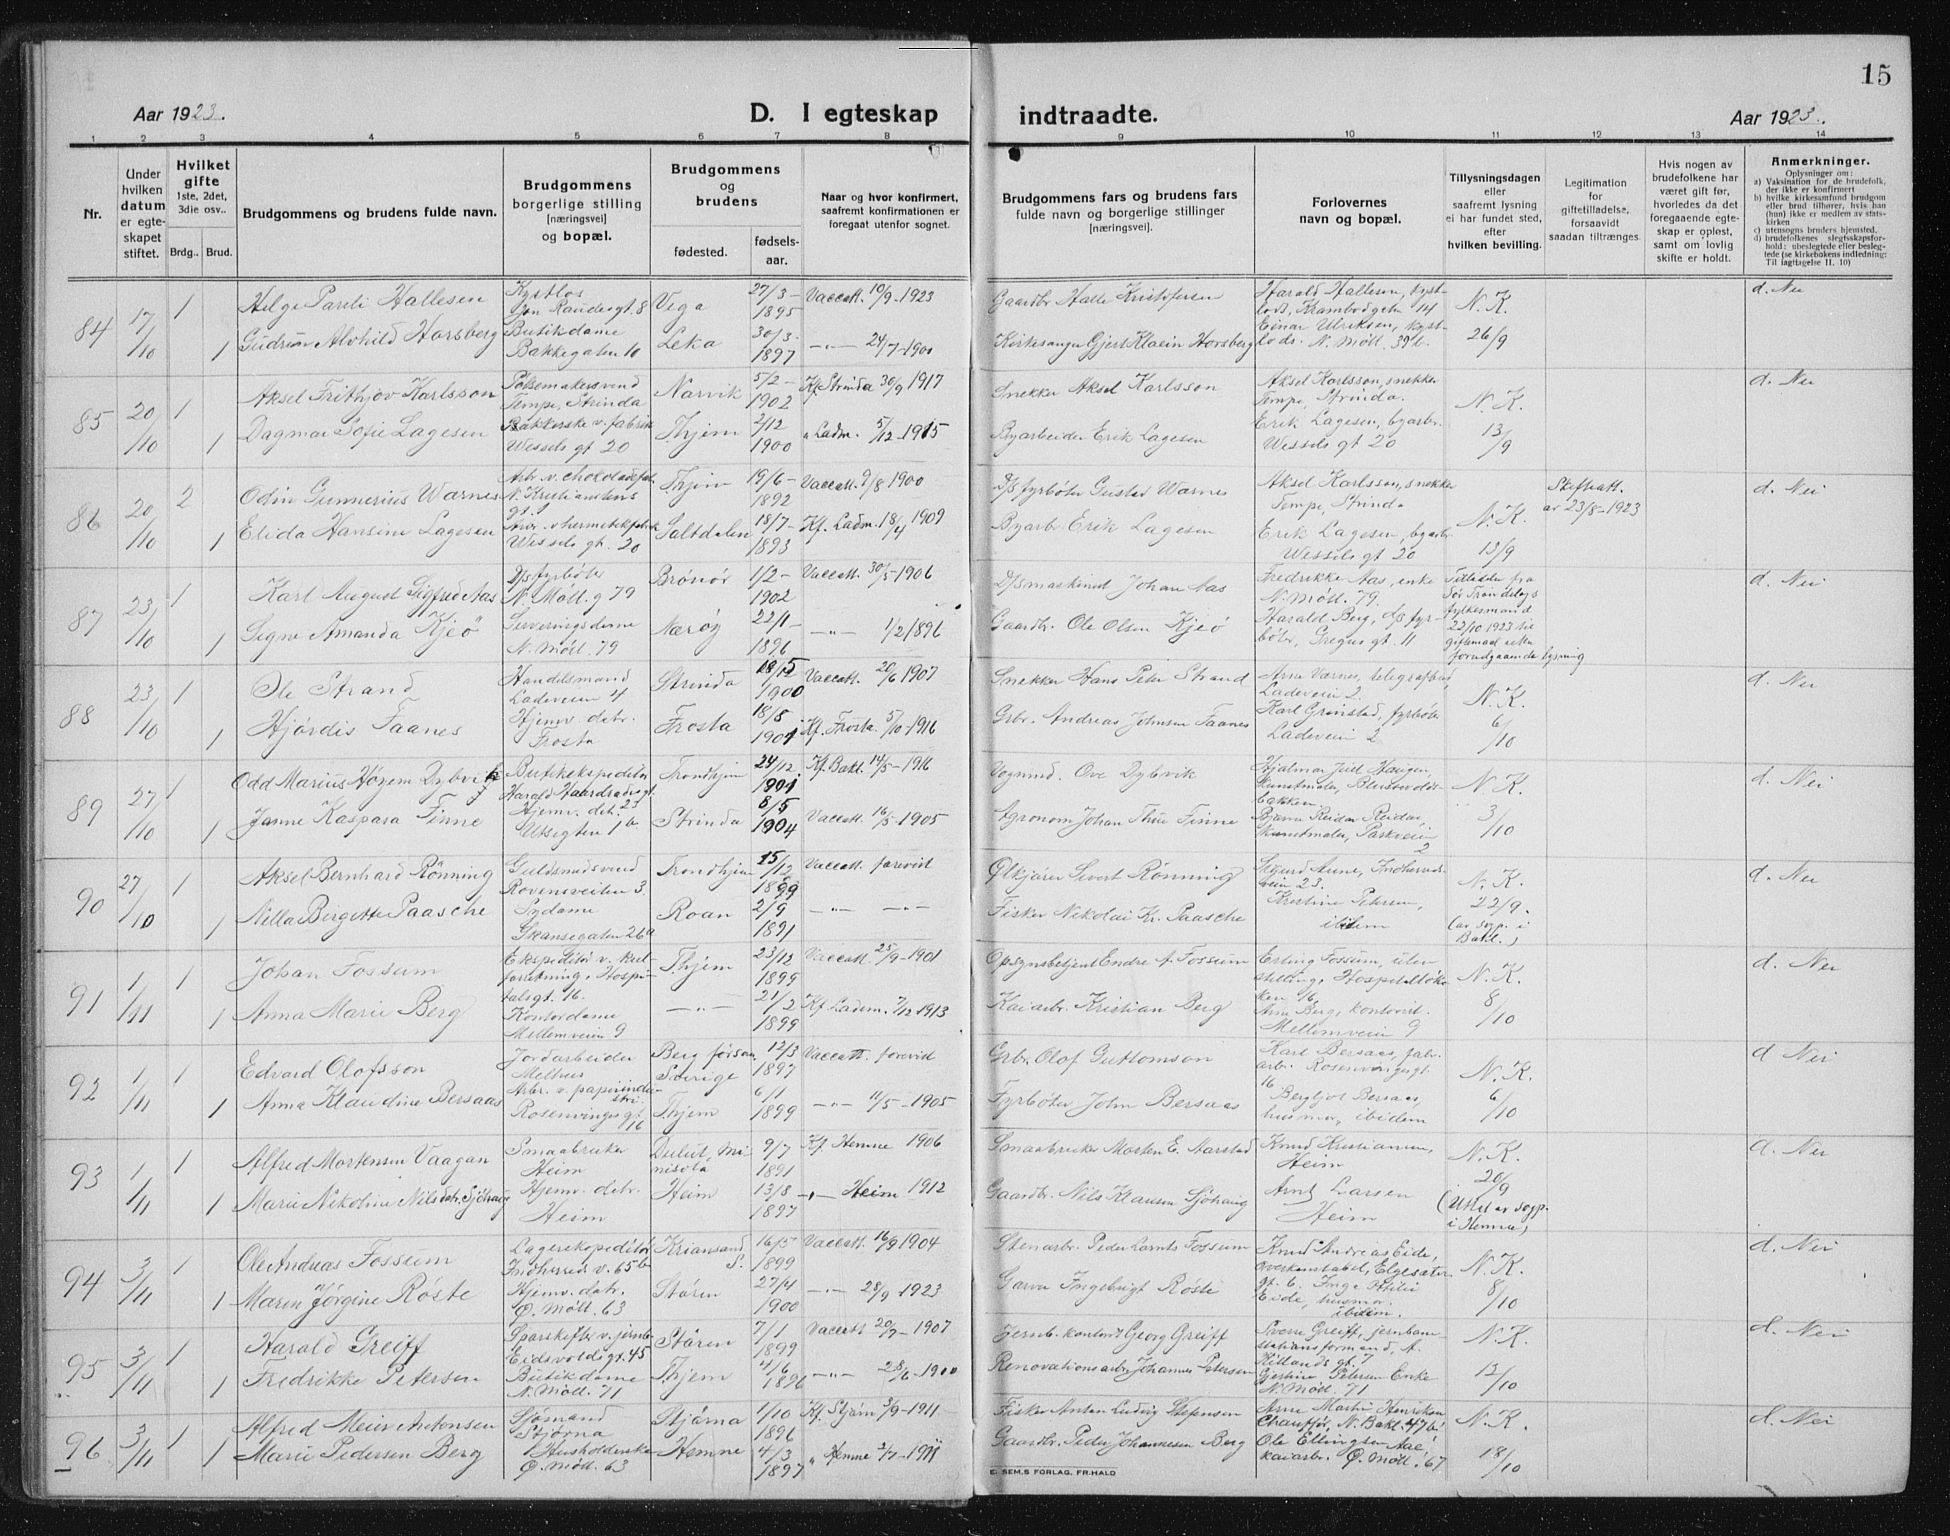 15
Aar 1923.
D. I egteskap indtraadte.
Aar 1923.
1 2 3 4 5 6 7 8 9 10 11 12 13 14
Nr.
Under hvilken datum er egteskapet stiftet.
Hvilket gifte 1ste, 2det, 3die osv..
Brdg.. Brud.
Brudgommens og brudens fulde navn.
Brudgommens borgerlige stilling [næringsvei] og bopæl.
Brudgommens og brudens
fødested.
fødselsaar.
Naar og hvor konfirmert, saafremt konfirmationen er foregaat utenfor sognet.
Brudgommens fars og brudens fars fulde navn og borgerlige stillinger [næringsvei].
Forlovernes navn og bopæl.
Tillysningsdagen eller saafremt lysning ei har fundet sted, efter hvilken bevilling.
Legitimation for giftetilladelse, forsaavidt saadan tiltrænges.
Hvis nogen av brudefolkene har været gift før, hvorledes da det foregaaende egteskap er opløst, samt om lovlig skifte er holdt.
Anmerkninger.
Oplysninger om:
a) Vaksination for de brudefolk, der ikke er konfirmert
b) hvilke kirkesamfund brudgom eller brud tilhører, hvis han (hun) ikke er medlem av statskirken
c) utensogns bruders hjemsted.
d) brudefolkenes slegtsskapsforhold: ubeslegtede eller beslegtede (se kirkebokens indledning: Til iagttagelse II. 10)
84 17/10 1 Helge Pareli Hallesen Kystlos Gjön Raudesgt. 8 Vega 27/3-1895 Vaccatt. 10/9-1923 Gaardbr. Halle Kristofersen Harald Hallesen, kystlods, Krambodgetn 14 N.K. 26/9 d. Nei
1 Gudrun Alvhild Horsberg Butikdame Bakkegaten 10 Leka 30/3-1897 -"- 24/7-1900 Kirkesanger Gjert Klaein Horsberg Einar Ulriksen, kystlods. N. Möll. 39b.
85 20/10 1 Aksel Frithjov Karlsson Pölsemakersvend Tempe, Strinda Narvik 5/2-1902 Kf. Strinda 30/9 1917 Snekker Aksel Karlsson Aksel Karlsson, snekker Tempe, Strinda. N.K. 13/9 d. Nei
1 Dagmar Sofie Lagesen v. fabrik Wessels gt 20 Thjem 2/12 1900 " Ladm. 5/12-1915 Byarbeider Erik Lagesen Erik Lagesen, byarbr. Wessels gt 20
86 20/10 2 Odin Gunnerius Warnes Arb. v. chokoladefab. N. Kristiansens gt. 1 Thjem 19/6-1892 Vaccatt. 9/8 1900 D/S fyrböter Gustad Warnes Aksel Karlsson, snekker Tempe, Strinda N.K. 13/9 Skifteatt. av 23/8-1923 d. Nei
1 Elida Hansine Lagesen Arb. v hermetikfabrik Wessels gt. 20 Saltdalen 18/7-1893 Kf. Ladm. 18/4 1909 Byarbr Erik Lagesen Erik Lagesen, byarbr Wessels gt 20
87 23/10 1 Karl August Sigfred Aas D/s fyrböter N. Möll. g 79 Brönöy 1/2-1902 Vaccatt. 30/5-1906 D/S maskinist Johan Aas Fredrikke Aas, enke N. Möll. 79. Tilladelse fra Sör Tröndelags fylkesmand 22/10 1923 til giftemaal uten forudgaaende lysning d. Nei
1 Signe Amanda Kjeö Serveringsdame N. Möll. 79 Næröy 22/1-1896 -"- 1/2 1896 Gaardbr. Ole Olsen Kjeö Harald Berg, d/s fyrböter, Gregus gt. 11
88 23/10 1 Ole Strand Handelsmand Ladeveien 4 Strinda 1900 Vaccatt. 20/6 1907 Snekker Hans Peter Strand Arne Varnes, telegrafbud, Ladeveien 2. N.K. 6/10 d. Nei
1 Hjördis Faanes Hjemv. datr. Frosta Frosta 18/8 1901 Kf. Frosta 5/10-1916 Grbr. Andreas Johnsen Faanes Karl Grinstad, fyrböter Ladeveien 2
89 27/10 1 Odd Marius Höyem Dybvik Butikekspeditör Harald Haardradesgt. 23 Trondhjem 24/12 1901 Kf. Bakl. 14/5-1916 Vognmd. Ove Dybvik Hjalmar Juel Haugen, kunstmaler, N.K. 3/10 d. Nei
1 Janne Kaspara Finne Hjemv. datr. Utsigten 1b Strinda 8/5 1904 Vaccatt. 16/5-1905 Agronom Johan Thue Finne Bjarne Reidar Reidar, kunstmaler, Parkveien 2
90 27/10 1 Aksel Bernhard Rönning Guldsmedsvend Rosensveiten 3 Trondhjem 15/12 1899 Vaccatt. forevist Ölkjörer Sivert Rönning Sigurd Aune, Indherredsveien 23. N.K. 22/9. (av sogp. i Bakl.) d. Nei
1 Nilla Birgitte Paasche Sydame Skansegaten 26a Roan 2/9 1891 -"- -"- Fisker Nikolai Kr. Paasche Kristine Petersen, ibidem
91 1/11 1 Johan Fossum Ekspeditör v. forretning, Hospitalsgt. 16. Thjem 23/12 1899 Vaccatt. 25/9-1901 Opsynsbetjent Endre A. Fossum Erling Fossum, uten stilling, Hospitallökken 16, N.K. 8/10 d. Nei
1 Anna Marie Berg Kontordame Mellemveien 9 -"- 21/2 1899 Kf. Ladem. 7/12 1913 Kaiarbr. Kristian Berg Arne Berg, kontorist. Mellemveien 9
92 1/11 1 Edvard Olofsson Jordarbeider Melhus Berg forsaml. Sverige 12/3 1897 Vaccatt. forevist Grbr. Olof Guttomson Karl Bersaas, fabr. arbr. Rosenvingesgt. 16 N.K. 6/10 d Nei
1 Anna Klaudine Bersaas Arbr. v. papirindustri. Rosenvinges gt. 16 Thjem 6/1 1899 -"- 11/5-1905 Fyrböter John Bersaas Bergljot Bersaas, husmor, ibidem
93 1/11 1 Alfred Mortensen Vaagan Smaabruker Heim Dulut, Minisota 9/7 1891 Kf. Hemne 1906 Smaabruker Morten E. Aarstad Knud Kristiansen, Heim N.K. 20/9 (Utst. av sogp. i Hemne) d. Nei
1 Marie Nikoline Nilsdatr. Sjöhaug Hjemv. datr. Heim Heim 13/8 1897 -"- Heim 1912 Gaardbr. Nils Klausen Sjöhaug Arnt Larsen Heim
94 3/11 1 Ole Andreas Fossum Lagerekspeditör Indherreds v. 65b Kriansand S. 16/5 1899 Vaccatt. 16/9 1904 Stenarbr. Peder Larnts Fossum Knud Andreas Eide, overkonstabel, Elgesæter gt. 6. N.K. 8/10 d. Nei
1 Maren Jörgine Röste Hjemv. datr. Ö. Möll. 63 Stören 27/4 1900 -"- 28/9-1923 Garver Ingebrigt Röste Inga Ottilie Eide, husmor. ibidem.
95 3/11 1 Harald Greiff Sparskifte v. jernb. Eidsvoldsgt. 45 Stören 7/1 1899 Vaccatt 20/9-1907 Jernb. kontorist Georg Greiff Sverre Greiff, jernbanestationsformand, A. Kitlands gt. 7 N.K. 12/10 d. Nei
1 Fredrikke Petersen Butikdame N. Möll. 71 Thjem 4/6 1896 -"- 28/6-1900 Renovationsarbr. Johannes Petersen Gjertine Petersen Enke N. Möll. 71
96 3/11 1 Alfred Meier Antonsen Sjömand Stjörna Stjörna 1/10 1896 Kf. Stjörn 3/9-1911 Fisker Anton Ludvig Stefensen Arne Martin Henriksen Chaufför, N. Bakl. 47b. N.K. 18/10 d. Nei
1 Marie Pedersen Berg Husholderske Ö. Möll. 63 Hemne 4/3 1897 " Hemne 2/7-1911 Gaardbr. Peder Johannesen Berg Ole Ellingsen Aae, kaiarbr. Ö. Möll. 67
E. SEM,S FORLAG, FR.HALD